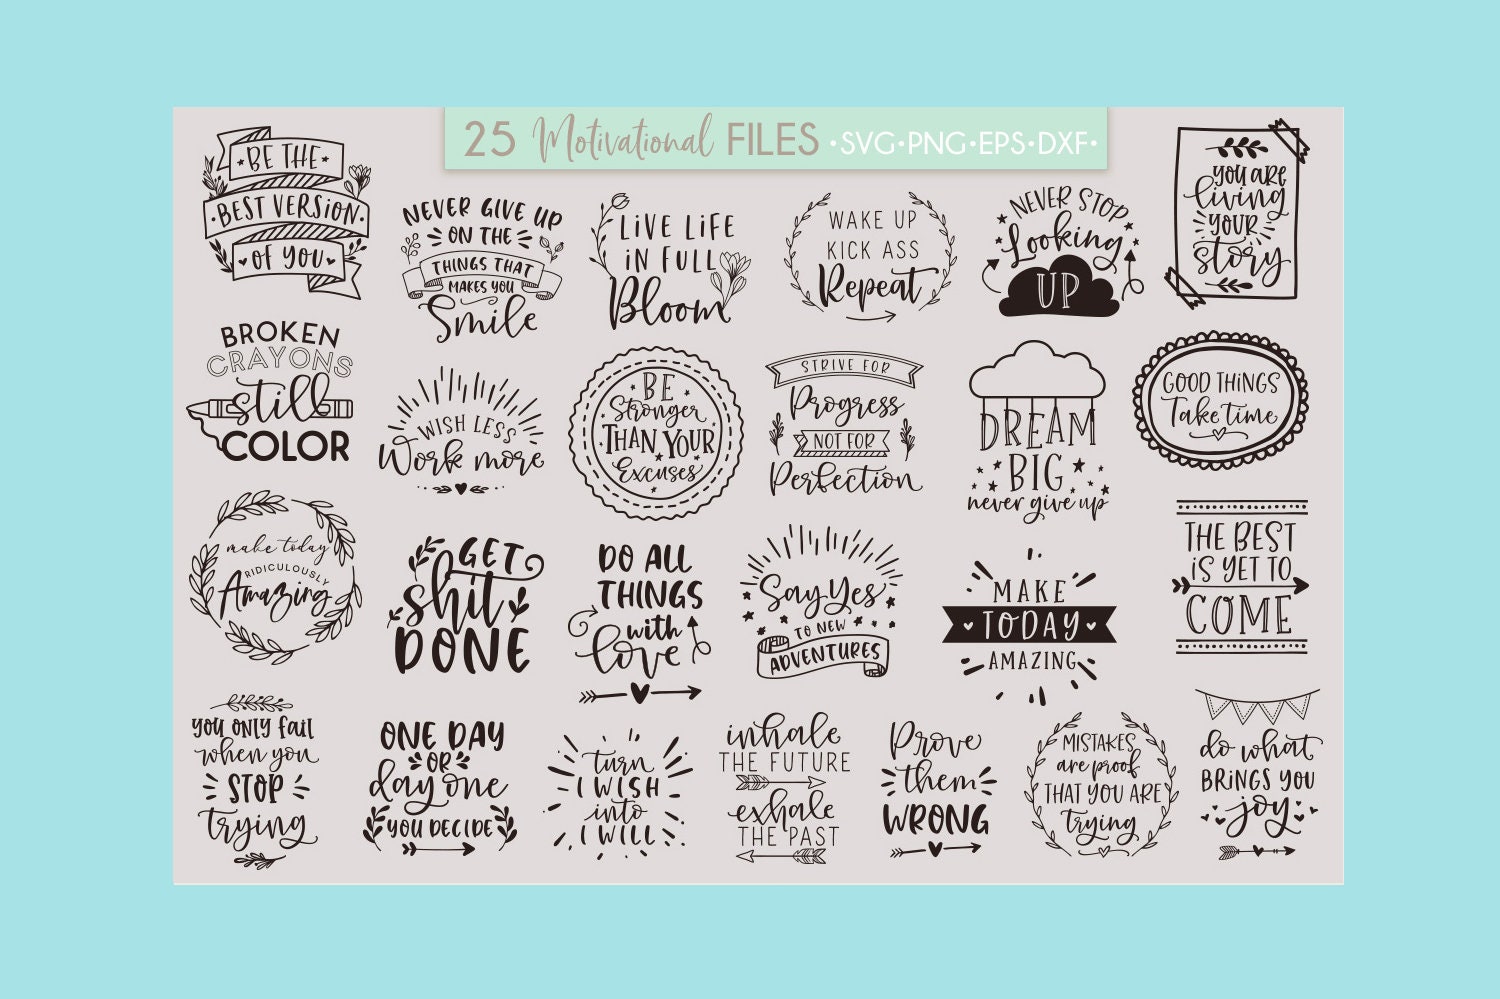 25 Motivational FILES •SVG•PNG•EPS•DXF•
BE THE
•BEST VERSION•
OF YOU
NEVER GIVE UP
ON THE
THINGS THAT
MAKES YOU
Smile
LIVE LIFE
IN FULL
Bloom
WAKE UP
KICK ASS
Repeat
NEVER STOP
Looking
UP
YOU ARE
living
YOUR
story
BROKEN
CRAYONS
still
COLOR
WISH LESS
Work more
BE
Stronger
THAN YOUR
Excuses
STRIVE FOR
Progress
NOT FOR
Perfection
DREAM
BIG
never give up
GOOD THINGS
Take time
make today
RIDICULOUSLY
Amazing
GET
shit
DONE
DO ALL
THINGS
with
love
Say Yes
TO NEW
ADVENTURES
MAKE
TODAY
AMAZING
THE BEST
IS YET TO
COME
YOU ONLY FAIL
when you
STOP
trying
ONE DAY
OR
day one
YOU DECIDE
turn
I WISH
into
I WILL
inhale
THE FUTURE
exhale
THE PAST
Prove
them
WRONG
MISTAKES
are proof
THAT YOU ARE
trying
do what
BRINGS YOU
joy